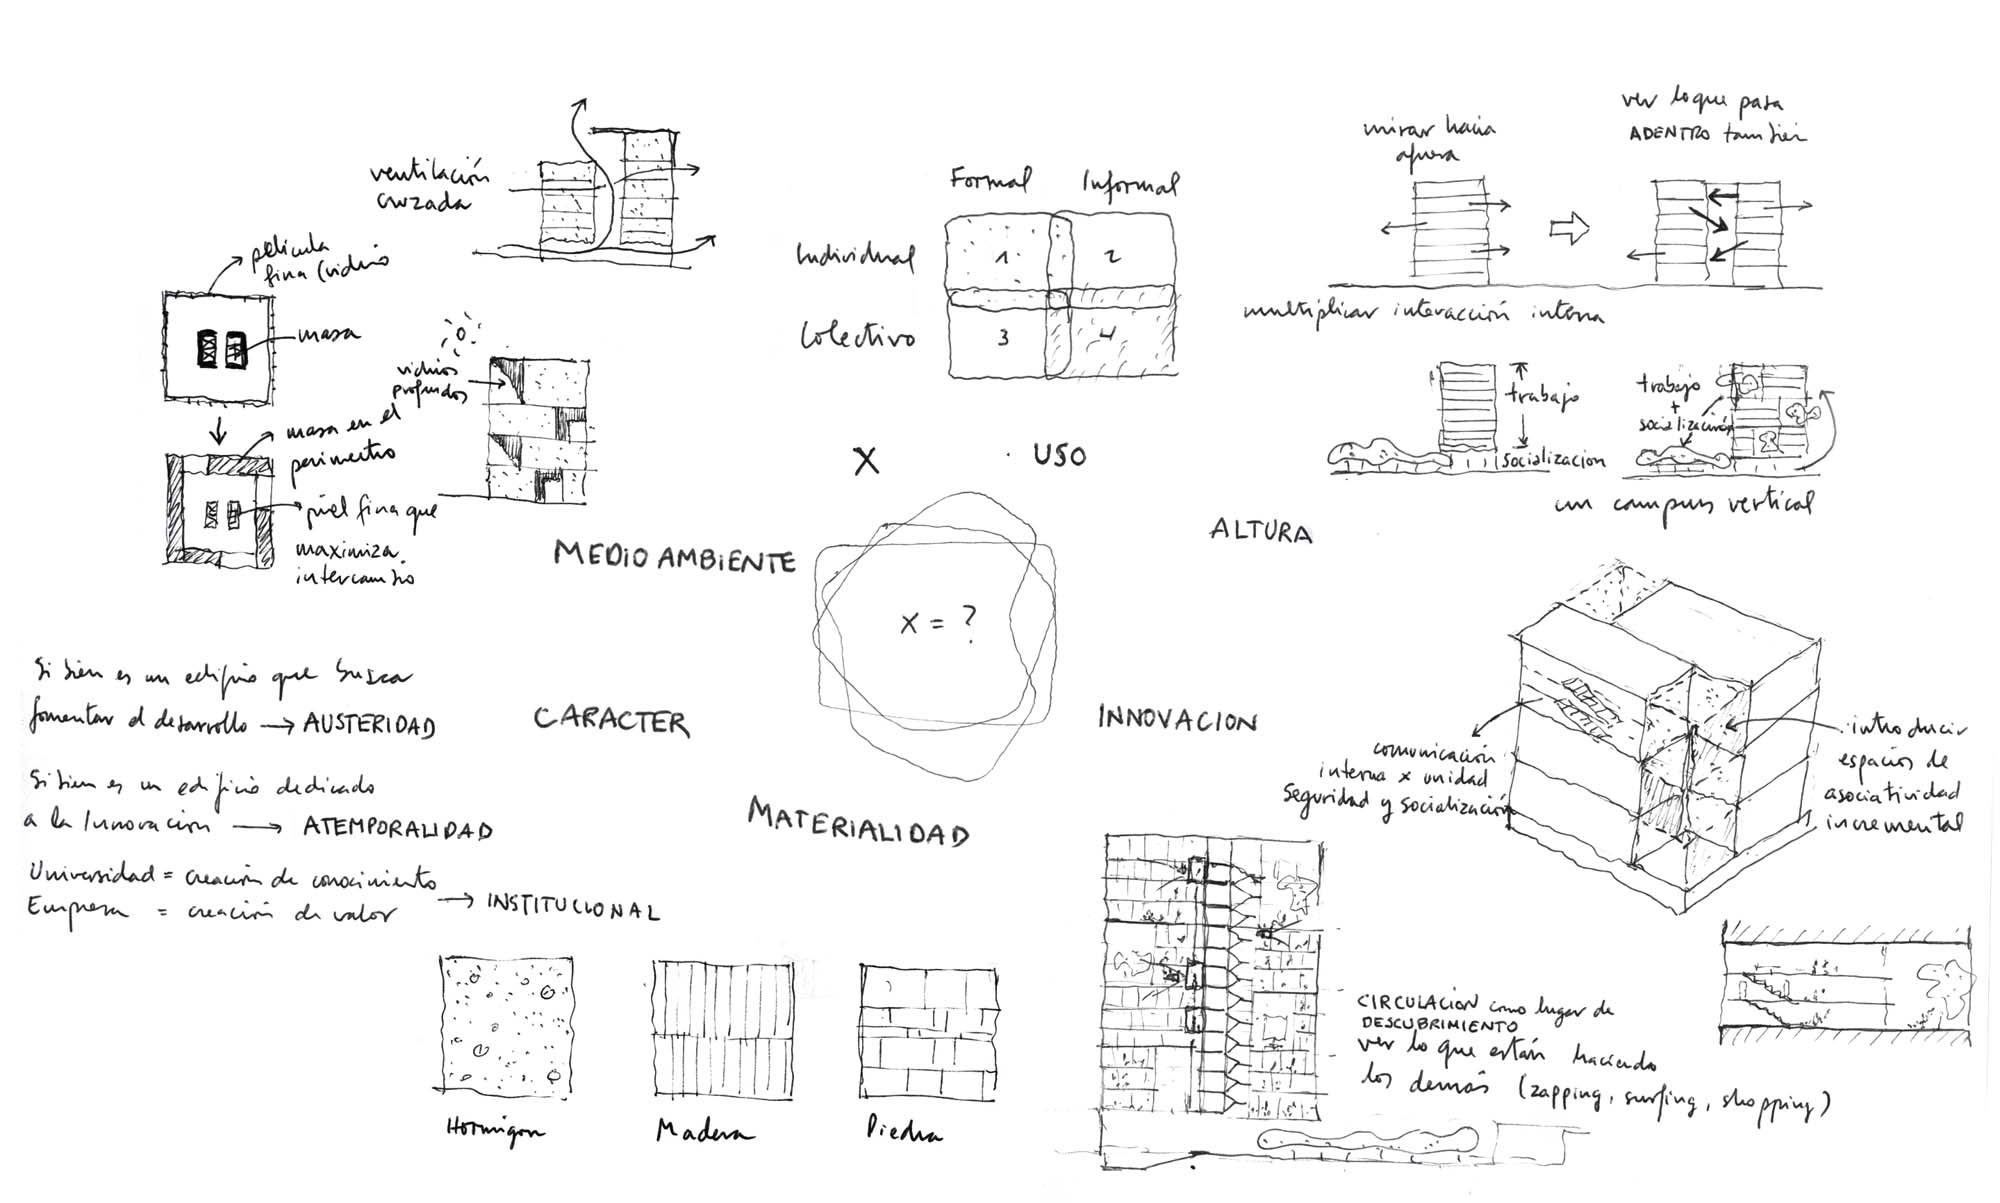 ventilación
cruzada
película
fina (vidrio
masa
masa en el
perimetro
piel fina que
maximiza
intercambio
vidrios
profundos
Formal
Informal
Individual
Colectivo
1
2
3
4
mirar hacia
afuera
ver lo que pasa
ADENTRO también
multiplicar interacción interna
trabajo
socialización
trabajo
+
socialización
un campus vertical
X
USO
MEDIO AMBIENTE
ALTURA
X = ?
CARACTER
INNOVACION
MATERIALIDAD
Si bien es un edificio que busca
fomentar el desarrollo → AUSTERIDAD
Si bien es un edificio dedicado
a la Innovación → ATEMPORALIDAD
Universidad = creación de conocimiento
Empresa = creación de valor
→ INSTITUCIONAL
comunicación
interna x unidad
seguridad y socialización
introducir
espacios de
asociatividad
incremental
CIRCULACION como lugar de
DESCUBRIMIENTO
ver lo que están haciendo
los demás (zapping, surfing, shopping)
Hormigon
Madera
Piedra